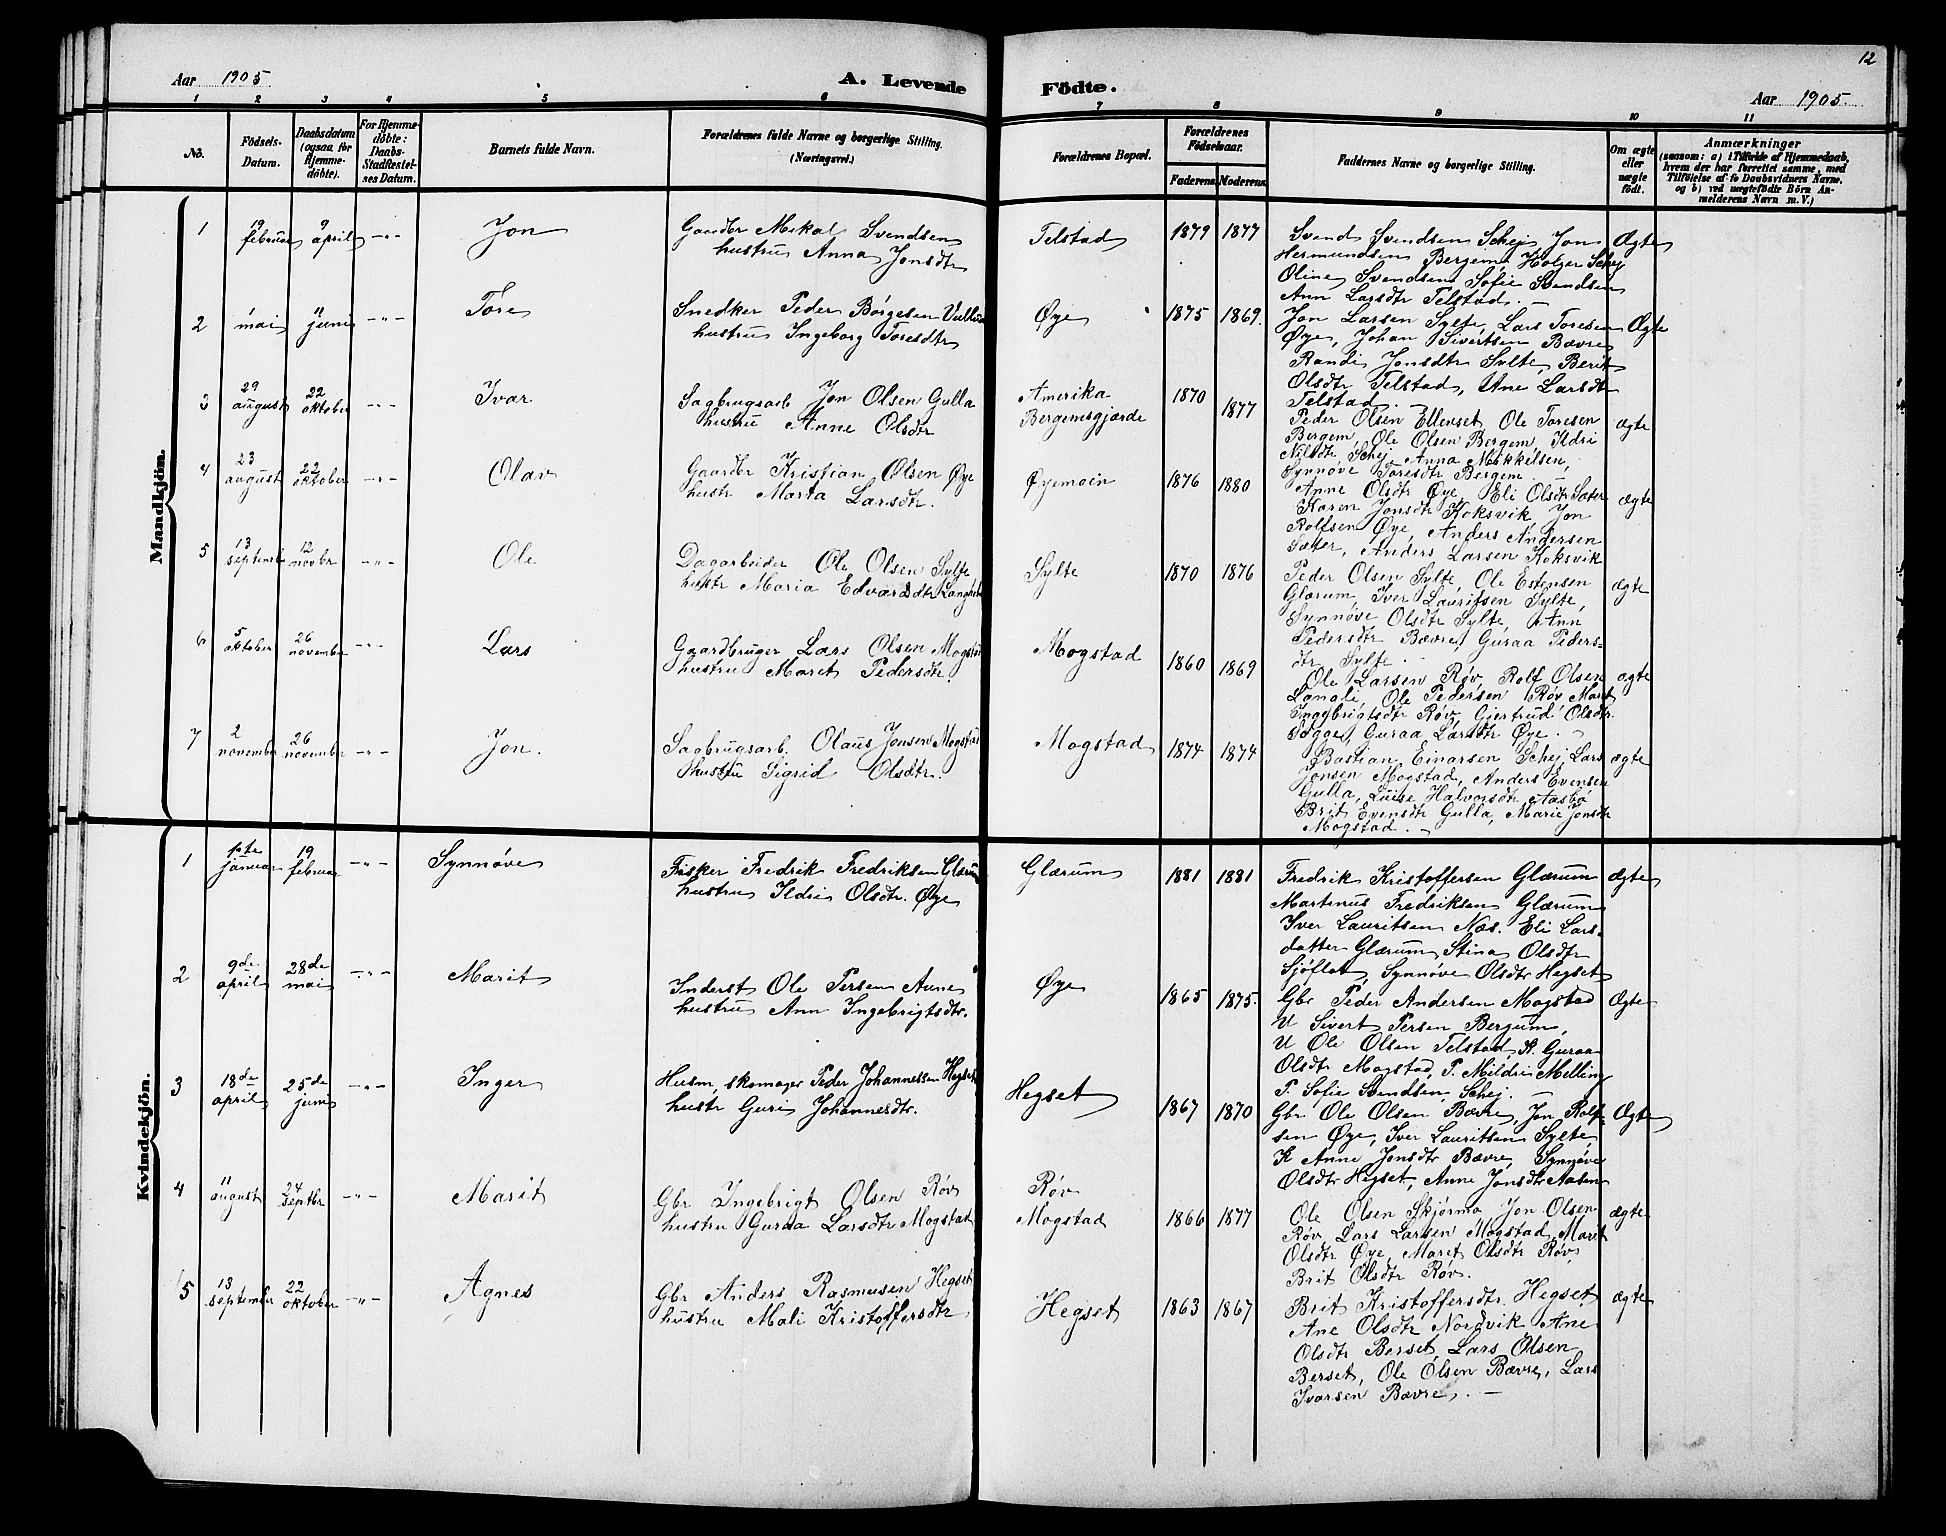 12
Aar 1905
A. Levende
Födte.
Aar 1905.
1 2 3 4 5 6 7 8 9 10 11
No.
Födsels-
Datum.
Daabsdatum
(ogsaa for
Hjemme-
döbte).
For Hjemme-
döbte:
Daabs-
Stadfestel-
ses Datum.
Barnets fulde Navn.
Forældrenes fulde Navne og borgerlige Stilling.
(Næringsvei.)
Forældrenes Bopæl.
Forældrenes
Födselsaar.
Faderens.
Moderens.
Faddernes Navne og borgerlige Stilling.
Om ægte
eller
uægte
födt.
Anmærkninger
(saasom: a) i Tilfælde af Hjemmedaab,
hvem der har forrettet samme, med
Tilföielse af to Daabsvidners Navne,
og b) ved uægtefödte Börn An-
melderens Navn m. V.)
Mandkjön.
1
19
februar
9
april
-"-
Jon
Gaardbr Mikal Svendsen
hustru Anna Jonsdtr
Telstad
1879 1877
Svend Svendsen Schej Jon
Hermundsen Bergem, Holger Schej
Oline Svendsen, Sofie Svendsen
Ann Larsdtr Telstad. –
Ægte
2
mai
11
juni
-"-
Tore
Snedker Peder Börgesen
hustru Ingeborg Toresdtr
Øye
1875 1869.
Jon Larsen Sylte, Lars Toresen
Øye, Johan Sivertsen Bævre
Randi Jonsdtr Sylte, Berit
Olsdtr Telstad, Ane Larsdtr
Telstad.
Ægte
3
29
august
22
oktober
-"-
Ivar
Sagbrugsarb Jon Olsen Gulla
hustru Anne Olsdtr
Amerika
Bergemsgjærde
1870 1877
Peder Olsen Ellenset, Ole Toresen
Bergem, Ole Olsen Bergem, Ildri
Nilsdtr Schej, Anna Mikkelsen,
Synnöve Toresdtr Bergem –
ægte
4
23
august
22
oktober
-"-
Olav
Gaardbr Kristian Olsen Øye
hustr Marta Larsdtr.
Øyemoin
1876 1880
Anne Olsdtr Øye, Eli Olsdtr Sæter
Karen Jonsdtr Koksvik Jon
Rolfsen Øye, Anders Andersen
Sæter, Anders Larsen Koksvik
ægte
5
13
septemb
12
novbr
-"-
Ole
Dagarbeider Ole Olsen Sylte
hustr Maria Edvardsdtr
Sylte
1870 1876
Peder Olsen Sylte, Ole Estensen
Glærum Iver Lauritsen Sylte,
Synnöve Olsdtr Sylte, Ann
Pedersdtr Bævre, Guraa Peders-
dtr Sylte. –
ægte
6
5
oktober
26
november
-"-
Lars
Gaardbruger Lars Olsen Mogstad
hustru Marit Pedersdtr.
Mogstad
1860 1869
Ole Larsen Røv, Rolf Olsen
Ole Pedersen Røv Marit
Ingebrigtsdtr Røv, Gjertrud Olsdtr
Guraa Larsdtr Øye. –
ægte
7
2
november
26
november
-"-
Jon.
Sagbrugsarb. Olaus Jonsen Mogstad
hustru Sigrid Olsdtr.
Mogstad
1874 1874
Bastian Einarsen Schej, Lars
Jonsen Mogstad, Anders Evensen
Gulla, Luise Halvorsdtr Aasbø
Brit Evensdtr Gulla, Marie Jonsdtr
Mogstad. –
ægte
Kvindekjön.
1
1ste
januar
19
februar
-"-
Synnøve
Fisker Fredrik Fredriksen Glærum
hustru Ildri Olsdtr. Øye
Glærum
1881 1881
Fredrik Kristoffersen Glærum
Martinus Fredriksen Glærum
Iver Lauritsen Næs. Eli Lars-
datter Glærum, Stina Olsdtr
Sjøflot, Synnöve Olsdtr Hegset
Ægte
2
9de
april
28de
mai
-"-
Marit
Inderst Ole Persen Aune
hustru Ann Ingebrigtsdtr.
Øye
1865 1875.
Gbr Peder Andersen Mogstad
U Sivert Persen Bergum,
U Ole Olsen Telstad, K. Guraa
Olsdtr Mogstad, P. Mildri Melling
P. Sofie Svendsen, Schej. –
Ægte
3
18de
april
25de
juni
-"-
Inger
Husm, skomager Peder Johannessen Hegset
hustr Guri Johannesdtr.
Hegset
1867 1870
Gbr Ole Olsen Bævre, Jon Rolf-
sen Øye, Iver Lauritsen Sylte,
K Anne Jonsdtr Bævre, Synnøve
Olsdtr Hegset, Anne Jonsdtr Aasen
Ægte
4
11
august
24
septbr
-"-
Marit
Gbr Ingebrigt Olsen Røv
hustru Guraa Larsdtr Mogstad
Røv
Mogstad
1866 1877
Ole Olsen Skjørmo Jon Olsen
Røv Lars Larsen Mogstad, Marit
Olsdtr Øye, Maret Olsdtr Røv,
Brit Olsdtr Røv.
ægte
5
13
september
22
oktober
-"-
Agnes
Gbr Anders Rasmusen Hegset
hustru Mali Kristoffersdtr
Hegset
1863 1867
Brit Kristoffersdtr. Hegset,
Ane Olsdtr Nordvik Ane
Olsdtr Berset, Lars Olsen
Berset, Ole Olsen Bævre, Lars
Ivarsen Bævre. –
ægte